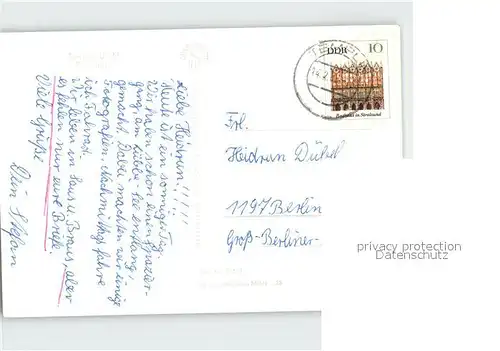 DDR 10
Rathaus in Stralsund
Liebe Heidrun!!!!!
Heute ist ein sonniger Tag.
Wir haben schon einen Spazier-
gang am Lübbe-See entlang
gemacht. Dabei machten wir einige
Fotografien. Nachmittags fahre
ich Fahrrad.
Wir leben in Saus u. Braus, aber
es fehlen nur eure Briefe.
Viele Grüße
Dein Stefan
Frl.
Heidrun
1197 Berlin
Groß-Berliner-
privacy protection
Datenschutz